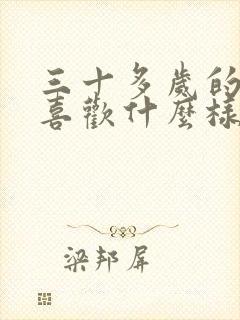 三十多歲的
喜歡什麼樣
梁邦屏